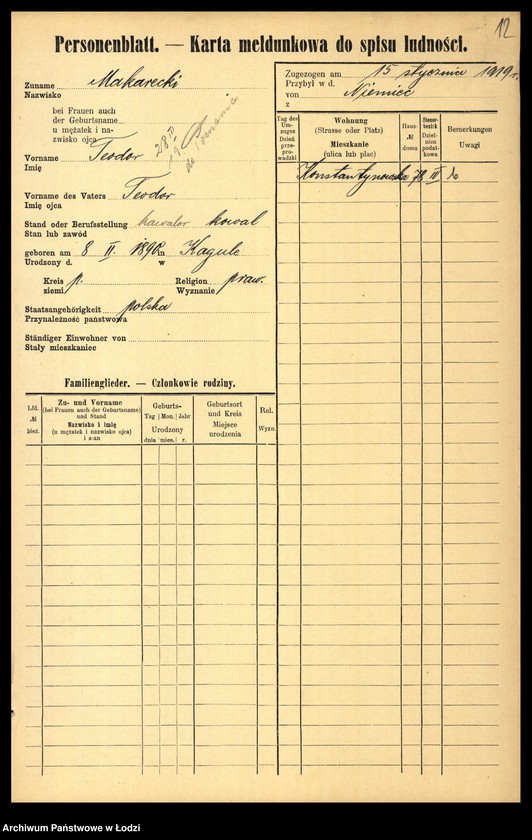 12
Personenblatt. — Karta meldunkowa do spisu ludności.
Zuname Makarecki
Nazwisko
bei Frauen auch
der Geburtsname
u mężatek i na-
zwisko ojca
Vorname Teodor
Imię
28 IV
19
do Poznania
Vorname des Vaters Teodor
Imię ojca
Stand oder Berufsstellung kawaler kowal
Stan lub zawód
geboren am 8 II. 1890 in Kagule
Urodzony d. w
Kreis p. Religion praw.
ziemi Wyznanie
Staatsangehörigkeit polska
Przynależność państwowa
Ständiger Einwohner von
Stały mieszkaniec
Zugezogen am 15 stycznia 1919 r.
Przybył w d.
von Niemiec
z
Tag des Um-zuges Dzień prze-prowadzki
Wohnung (Strasse oder Platz) Mieszkanie (ulica lub plac)
Haus- № domu
Steuer-bezirk Dziel-nica podat-kowa
Bemerkungen Uwagi
Konstantynowska 78 III do
Familienglieder. — Członkowie rodziny.
Lfd. № biez.
Zu- und Vorname
(bei Frauen auch der Geburtsname)
und Stand
Nazwisko i imię
(u mężatek i nazwisko ojca)
i s-an
Geburts-
Tag Mon. Jahr
Urodzony
dnia mies. r.
Geburtsort
und Kreis
Miejsce
urodzenia
Rel.
Wyzn.
Archiwum Państwowe w Łodzi